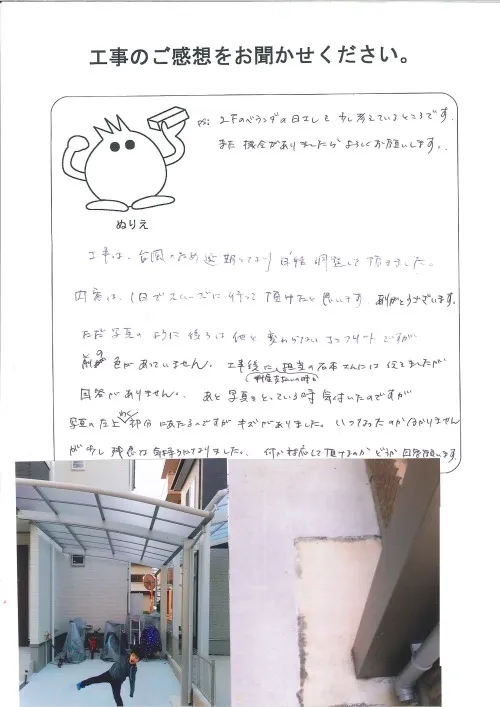 工事のご感想をお聞かせください。
P.S. 2Fのベランダの目かくしを少し考えているところです。
また機会がありましたらよろしくお願いします。
ぬりえ
工事は、台風のため延期となり日程調整して頂きました。
内容は、1日でスムーズに行って頂けたと思います。ありがとうございます。
ただ写真のように後ろは他と変わらないコンクリートですが
前の色があっていません。工事後に、担当の石本さんには伝えましたが
回答がありません。あと写真をとっている時気付いたのですが
写真の左上わく部分にあたるのですがキズがありました。いつなったのか分かりません
が少し残念な気持ちになりました。何か対応して頂けるのかどうか回答願います。